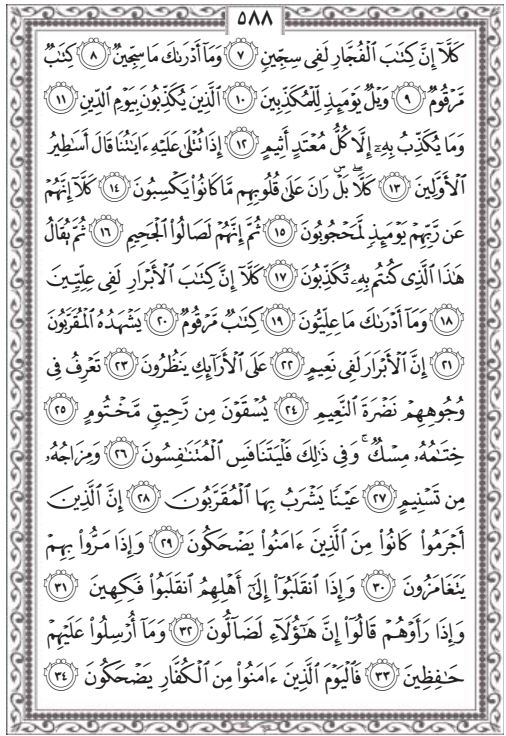 ٥٨٨
كَلَّآ إِنَّ كِتَٰبَ ٱلْفُجَّارِ لَفِى سِجِّينٍ ٧ وَمَآ أَدْرَىٰكَ مَا سِجِّينٌ ٨ كِتَٰبٌ
مَّرْقُومٌ ٩ وَيْلٌ يَوْمَئِذٍ لِّلْمُكَذِّبِينَ ١٠ ٱلَّذِينَ يُكَذِّبُونَ بِيَوْمِ ٱلدِّينِ ١١
وَمَا يُكَذِّبُ بِهِۦٓ إِلَّا كُلُّ مُعْتَدٍ أَثِيمٍ ١٢ إِذَا تُتْلَىٰ عَلَيْهِ ءَايَٰتُنَا قَالَ أَسَٰطِيرُ
ٱلْأَوَّلِينَ ١٣ كَلَّا ۖ بَلْ ۜ رَانَ عَلَىٰ قُلُوبِهِم مَّا كَانُوا۟ يَكْسِبُونَ ١٤ كَلَّآ إِنَّهُمْ
عَن رَّبِّهِمْ يَوْمَئِذٍ لَّمَحْجُوبُونَ ١٥ ثُمَّ إِنَّهُمْ لَصَالُوا۟ ٱلْجَحِيمِ ١٦ ثُمَّ يُقَالُ
هَٰذَا ٱلَّذِى كُنتُم بِهِۦ تُكَذِّبُونَ ١٧ كَلَّآ إِنَّ كِتَٰبَ ٱلْأَبْرَارِ لَفِى عِلِّيِّينَ
١٨ وَمَآ أَدْرَىٰكَ مَا عِلِّيُّونَ ١٩ كِتَٰبٌ مَّرْقُومٌ ٢٠ يَشْهَدُهُ ٱلْمُقَرَّبُونَ
٢١ إِنَّ ٱلْأَبْرَارَ لَفِى نَعِيمٍ ٢٢ عَلَى ٱلْأَرَآئِكِ يَنظُرُونَ ٢٣ تَعْرِفُ فِى
وُجُوهِهِمْ نَضْرَةَ ٱلنَّعِيمِ ٢٤ يُسْقَوْنَ مِن رَّحِيقٍ مَّخْتُومٍ ٢٥
خِتَٰمُهُۥ مِسْكٌ ۚ وَفِى ذَٰلِكَ فَلْيَتَنَافَسِ ٱلْمُتَنَٰفِسُونَ ٢٦ وَمِزَاجُهُۥ
مِن تَسْنِيمٍ ٢٧ عَيْنًا يَشْرَبُ بِهَا ٱلْمُقَرَّبُونَ ٢٨ إِنَّ ٱلَّذِينَ
أَجْرَمُوا۟ كَانُوا۟ مِنَ ٱلَّذِينَ ءَامَنُوا۟ يَضْحَكُونَ ٢٩ وَإِذَا مَرُّوا۟ بِهِمْ
يَتَغَامَزُونَ ٣٠ وَإِذَا ٱنقَلَبُوٓا۟ إِلَىٰٓ أَهْلِهِمُ ٱنقَلَبُوا۟ فَكِهِينَ ٣١
وَإِذَا رَأَوْهُمْ قَالُوٓا۟ إِنَّ هَٰٓؤُلَآءِ لَضَآلُّونَ ٣٢ وَمَآ أُرْسِلُوا۟ عَلَيْهِمْ
حَٰفِظِينَ ٣٣ فَٱلْيَوْمَ ٱلَّذِينَ ءَامَنُوا۟ مِنَ ٱلْكُفَّارِ يَضْحَكُونَ ٣٤